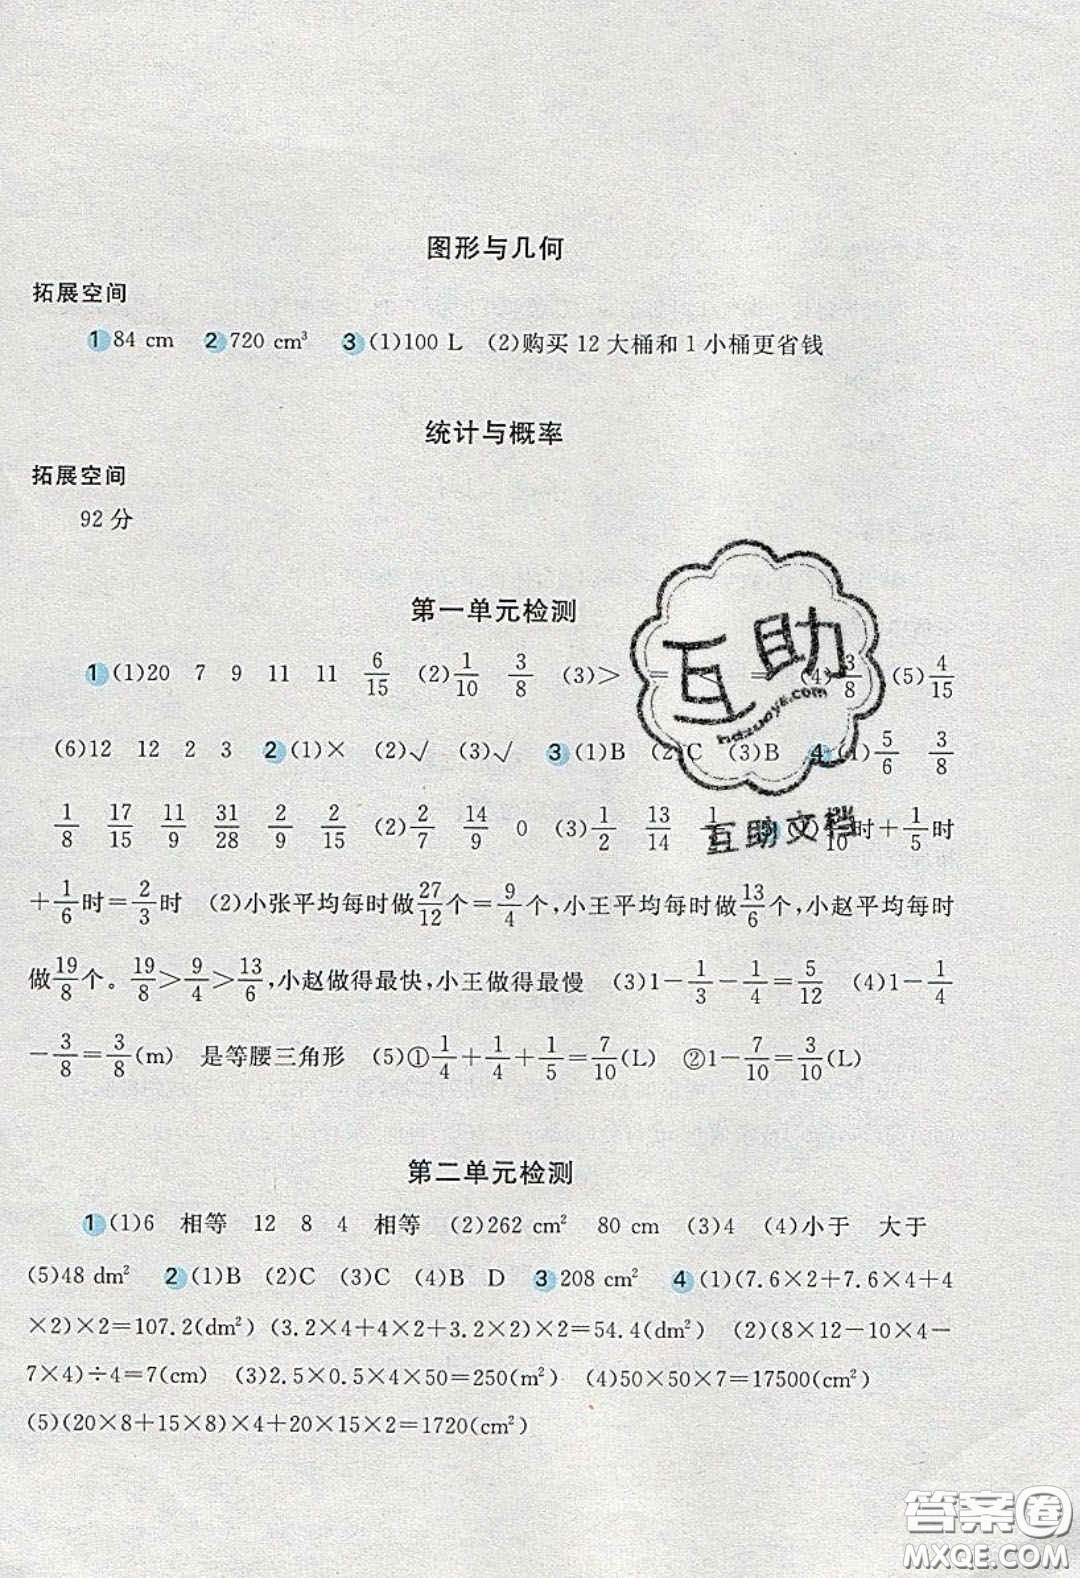 图形与几何
拓展空间
1 84 cm 2 720 cm³ 3 (1)100 L (2)购买 12 大桶和 1 小桶更省钱
统计与概率
拓展空间
92 分
第一单元检测
1 (1)20 7 9 11 11 6/15 (2)1/10 3/8 (3)> = = (4)3/8 (5)4/15
(6)12 12 2 3 2 (1)× (2)√ (3)√ 3 (1)B (2)C (3)B 4 (1)5/6 3/8
1/8 17/15 11/9 31/28 2/9 2/15 (2)2/7 14/9 0 (3)1/2 13/14 (1) /10时+1/5时
+1/6时=2/3时 (2)小张平均每时做27/12个=9/4个,小王平均每时做13/6个,小赵平均每时
做19/8个。19/8>9/4>13/6,小赵做得最快,小王做得最慢 (3)1-1/3-1/4=5/12 (4)1-1/4
-3/8=3/8(m) 是等腰三角形 (5)①1/4+1/4+1/5=7/10(L) ②1-7/10=3/10(L)
第二单元检测
1 (1)6 相等 12 8 4 相等 (2)262 cm² 80 cm (3)4 (4)小于 大于
(5)48 dm² 2 (1)B (2)C (3)C (4)B D 3 208 cm² 4 (1)(7.6×2+7.6×4+4
×2)×2=107.2(dm²) (3.2×4+4×2+3.2×2)×2=54.4(dm²) (2)(8×12-10×4-
7×4)÷4=7(cm) (3)2.5×0.5×4×50=250(m²) (4)50×50×7=17500(cm²)
(5)(20×8+15×8)×4+20×15×2=1720(cm²)
互助
huzuoye.com
互助文档
答案卷
MXQE.COM